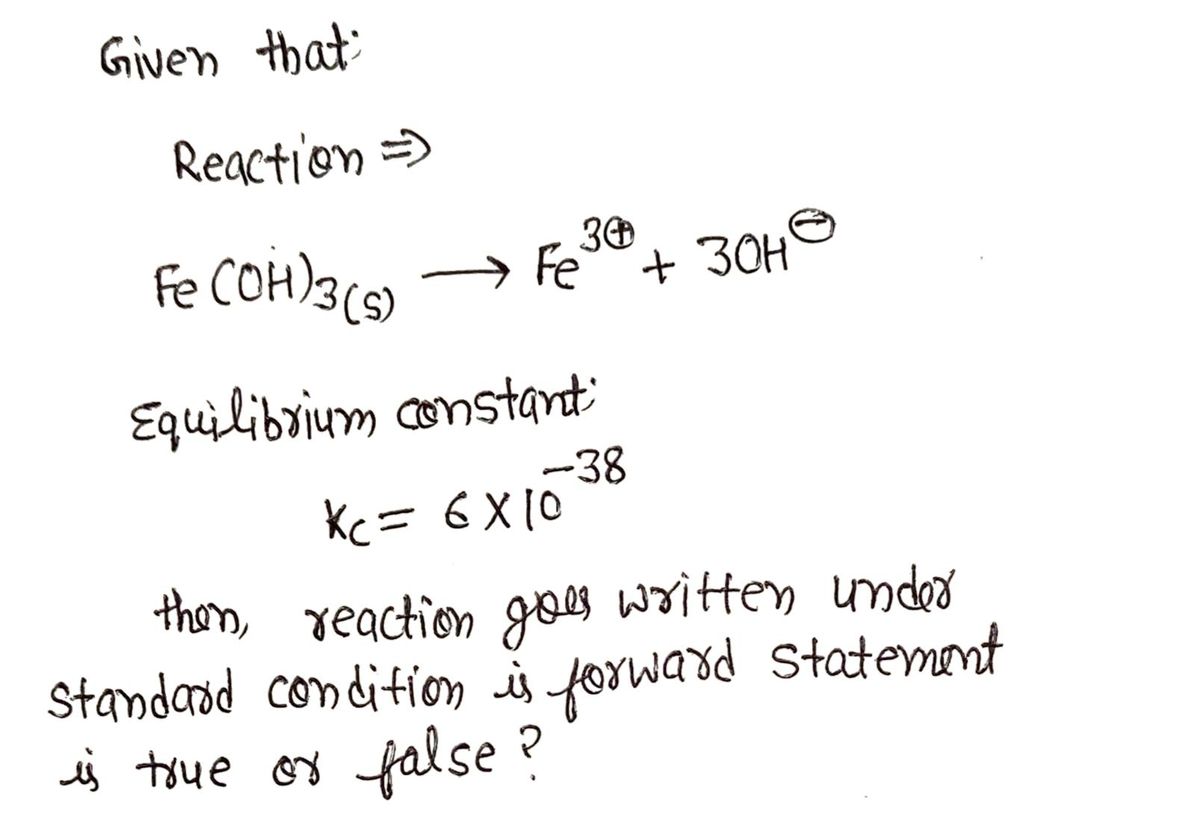 Given that:
Reaction ⇒
Fe(OH)3(s) ⟶ Fe^3⊕ + 3OH^⊖
Equilibrium constant:
Kc = 6 X 10^-38
then, reaction goes written under
standard condition is forward statement
is true or false ?